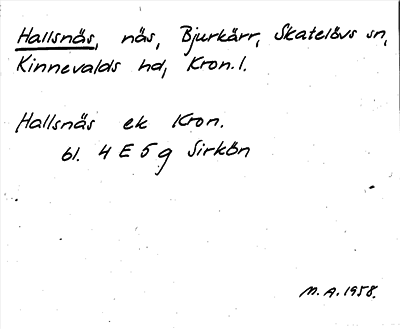 Hallsnäs, näs, Bjurkärr, Skatelövs sn,
Kinnevalds hd, Kron. l.
Hallsnäs ek Kron.
bl. 4 E 5 g Sirkön
M. A. 1958.